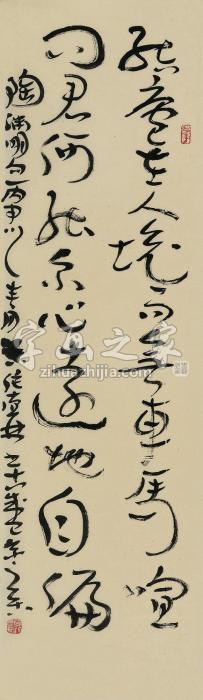 结廬在人境而無車馬喧
问君何能尔心遠地自偏
陶渊明句丙申
字画之家
zihuazhijia.com